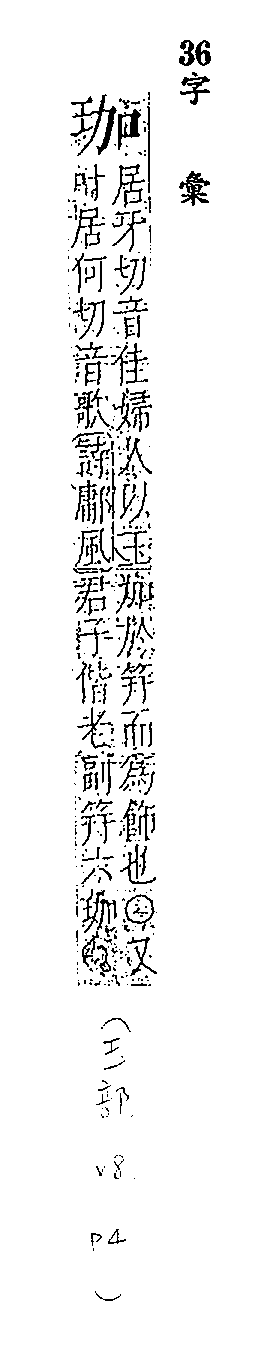 36
字彙
珈
居牙切音佳婦人以玉加於筓而爲飾也又
叶居何切音歌詩鄘風君子偕老副筓六珈
（玉部 v8. p4）